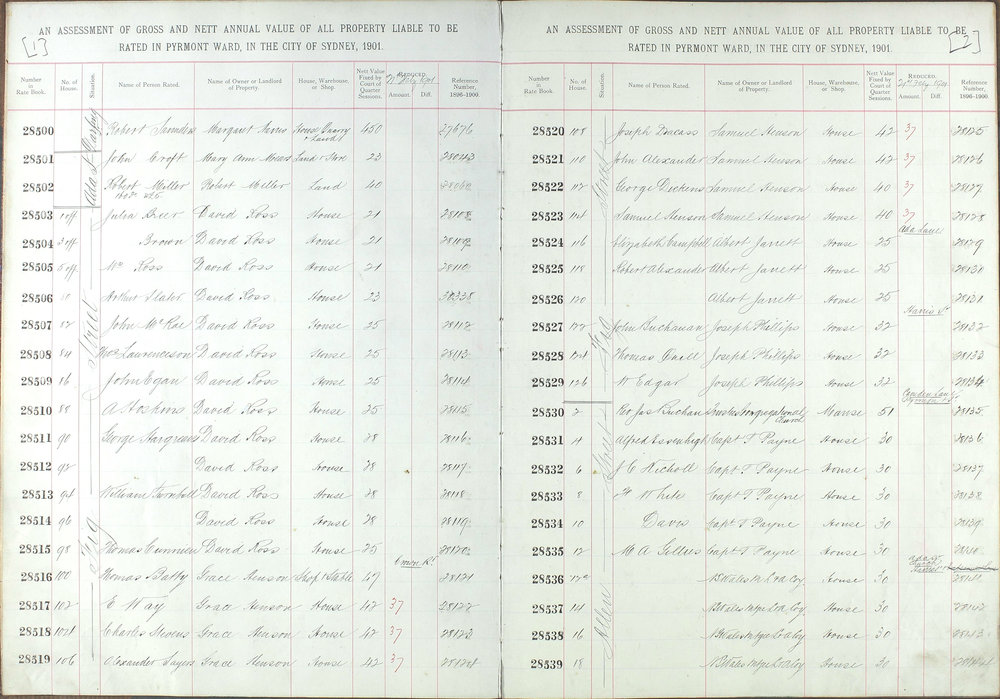 [1]
AN ASSESSMENT OF GROSS AND NETT ANNUAL VALUE OF ALL PROPERTY LIABLE TO BE
RATED IN PYRMONT WARD, IN THE CITY OF SYDNEY, 1901.
Number in Rate Book. No. of House. Situation. Name of Person Rated. Name of Owner or Landlord of Property. House, Warehouse, or Shop. Nett Value Fixed by Court of Quarter Sessions. REDUCED. Amount. Diff. Reference Number, 1896-1900.
28500 Robert Saunders Margaret Harris House Quarry & Land 450 27676
28501 John Croft Mary Ann Mears Land & Store 23 28043
28502 Robert Miller Robert Miller Land 40 28060
28503 1 off Julia Beer David Ross House 21 28108
28504 3 off Brown David Ross House 21 28109
28505 5 off Wm Ross David Ross House 21 28110
28506 10 Arthur Slater David Ross House 23 30338
28507 82 John McRae David Ross House 25 28112
28508 84 Lawrenceson David Ross House 25 28113
28509 16 John Egan David Ross House 25 28114
28510 88 A Hoskins David Ross House 25 28115
28511 90 George Hargreaves David Ross House 28 28116
28512 92 David Ross House 28 28117
28513 94 William Turnbull David Ross House 28 28118
28514 96 David Ross House 28 28119
28515 98 Thomas David Ross House 25 28120
Union St.
28516 100 Thomas Batty Grace Henson Shop & Stable 47 28121
28517 102 E Way Grace Henson House 42 37 28122
28518 104 Charles Stevens Grace Henson House 42 37 28123
28519 106 Alexander Sayers Grace Henson House 42 37 28124
Fig Street
[2]
AN ASSESSMENT OF GROSS AND NETT ANNUAL VALUE OF ALL PROPERTY LIABLE TO BE
RATED IN PYRMONT WARD, IN THE CITY OF SYDNEY, 1901.
Number in Rate Book. No. of House. Situation. Name of Person Rated. Name of Owner or Landlord of Property. House, Warehouse, or Shop. Nett Value Fixed by Court of Quarter Sessions. REDUCED. Amount. Diff. Reference Number, 1896-1900.
28520 108 Joseph Ducass Samuel Henson House 42 37 28125
28521 110 John Alexander Samuel Henson House 42 37 28126
28522 112 George Dickens Samuel Henson House 40 37 28127
28523 114 Samuel Henson Samuel Henson House 40 37 28128
Ada Lane
28524 116 Elizabeth Campbell Albert Jarrett House 25 28129
28525 118 Robert Alexander Albert Jarrett House 25 28130
28526 120 Albert Jarrett House 25 28131
Harris St
28527 122 John Buchanan Joseph Phillips House 32 28132
28528 124 Thomas Joseph Phillips House 32 28133
28529 126 W Edgar Joseph Phillips House 32 28134
28530 2 Rev Jas Buchan Trustees Congregational Church Manse 51 28135
28531 4 Alfred Capt T Payne House 30 28136
28532 6 J C Nicholl Capt T Payne House 30 28137
28533 8 White Capt T Payne House 30 28138
28534 10 Davis Capt T Payne House 30 28139
28535 12 M A Capt T Payne House 30 28140
28536 12a House 30 28141
28537 14 House 30 28142
28538 16 House 30 28143
28539 18 House 30 28144
Fig Street
Allen Street